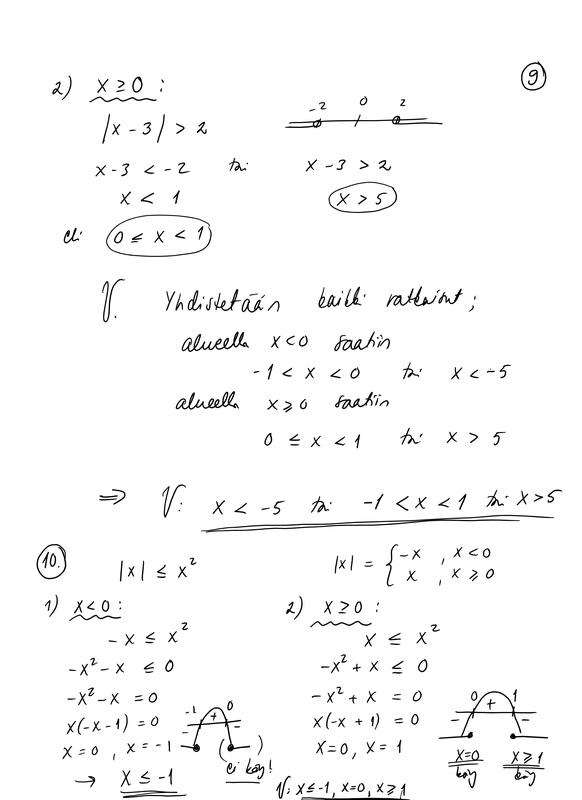 9
2) x ≥ 0 :
|x - 3| > 2
-2 0 2
x - 3 < -2 tai x - 3 > 2
x < 1 x > 5
eli 0 ≤ x < 1
V. Yhdistetään kaikki ratkaisut;
alueella x < 0 saatiin
-1 < x < 0 tai x < -5
alueella x ≥ 0 saatiin
0 ≤ x < 1 tai x > 5
⇒ V: x < -5 tai -1 < x < 1 tai x > 5
10. |x| ≤ x² |x| = { -x , x < 0
x , x ≥ 0
1) x < 0 :
-x ≤ x²
-x² - x ≤ 0
-x² - x = 0
x(-x - 1) = 0
x = 0 , x = -1
→ x ≤ -1
-1 + 0
- -
( ) ei käy!
2) x ≥ 0 :
x ≤ x²
-x² + x ≤ 0
-x² + x = 0
x(-x + 1) = 0
x = 0, x = 1
0 + 1
- -
x = 0 x ≥ 1
käy käy
V: x ≤ -1, x = 0, x ≥ 1